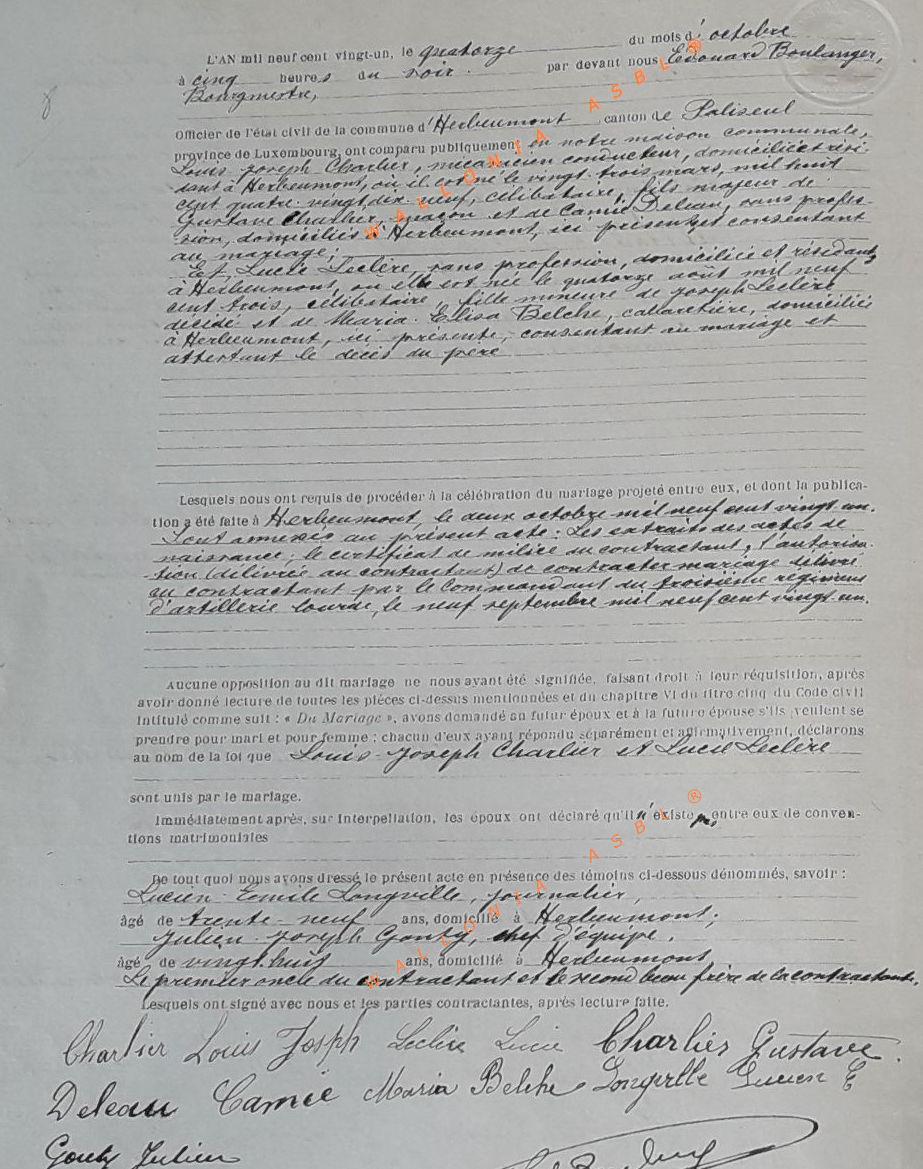 L'AN mil neuf cent vingt-un, le quatorze du mois d'octobre
à cinq heures du soir. par devant nous Edouard Boulanger,
Bourgmestre,
Officier de l'état civil de la commune d'Herbeumont canton de Paliseul
province de Luxembourg, ont comparu publiquement en notre maison communale,
Louis Joseph Charlier, mécanicien conducteur, domicilié et rési-
dant à Herbeumont, où il est né le vingt-trois mars, mil huit
cent quatre-vingt-dix-neuf, célibataire, fils majeur de
Gustave Charlier, maçon et de Camie Deleau, sans profes-
sion, domiciliés d'Herbeumont, ici présents et consentant
au mariage;
Et Lucie Leclère, sans profession, domiciliée et résidant,
à Herbeumont, où elle est née le quatorze août mil neuf
cent trois, célibataire, fille mineure de Joseph Leclère
décédé et de Maria-Elisa Belche, cabaretière, domiciliée
à Herbeumont, ici présente, consentant au mariage et
attestant le décès du père
Lesquels nous ont requis de procéder à la célébration du mariage projeté entre eux, et dont la publica-
tion a été faite à Herbeumont, le deux octobre mil neuf cent vingt un.
Sont annexés au présent acte: Les extraits des actes de
naissance; le certificat de milice du contractant, l'autorisa-
-tion (délivrée au contractant) de contracter mariage délivré
au contractant par le Commandant du troisième régiment
d'artillerie lourde, le neuf septembre mil neuf cent vingt-un.
Aucune opposition au dit mariage ne nous ayant été signifiée, faisant droit à leur réquisition, après
avoir donné lecture de toutes les pièces ci-dessus mentionnées et du chapitre VI du titre cinq du Code civil
intitulé comme suit : « Du Mariage », avons demandé au futur époux et à la future épouse s'ils veulent se
prendre pour mari et pour femme ; chacun d'eux ayant répondu séparément et affirmativement, déclarons
au nom de la loi que Louis-Joseph Charlier et Lucie Leclère
sont unis par le mariage.
Immédiatement après, sur interpellation, les époux ont déclaré qu'il n'existe pas entre eux de conven-
tions matrimoniales
De tout quoi nous avons dressé le présent acte en présence des témoins ci-dessous dénommés, savoir :
Lucien-Emile Longville, journalier,
âgé de trente-neuf ans, domicilié à Herbeumont;
Julien-Joseph Gouty, chef d'équipe.
âgé de vingt huit ans, domicilié à Herbeumont
Le premier oncle du contractant et le second beau frère de la contractante.
Lesquels ont signé avec nous et les parties contractantes, après lecture faite.
Charlier Louis Josph Leclère Lucie Charlier Gustave.
Deleau Camie Maria Belche Longville Lucien E
Gouty Julien
WALLONIA ASBL ®
WALLONIA ASBL ®